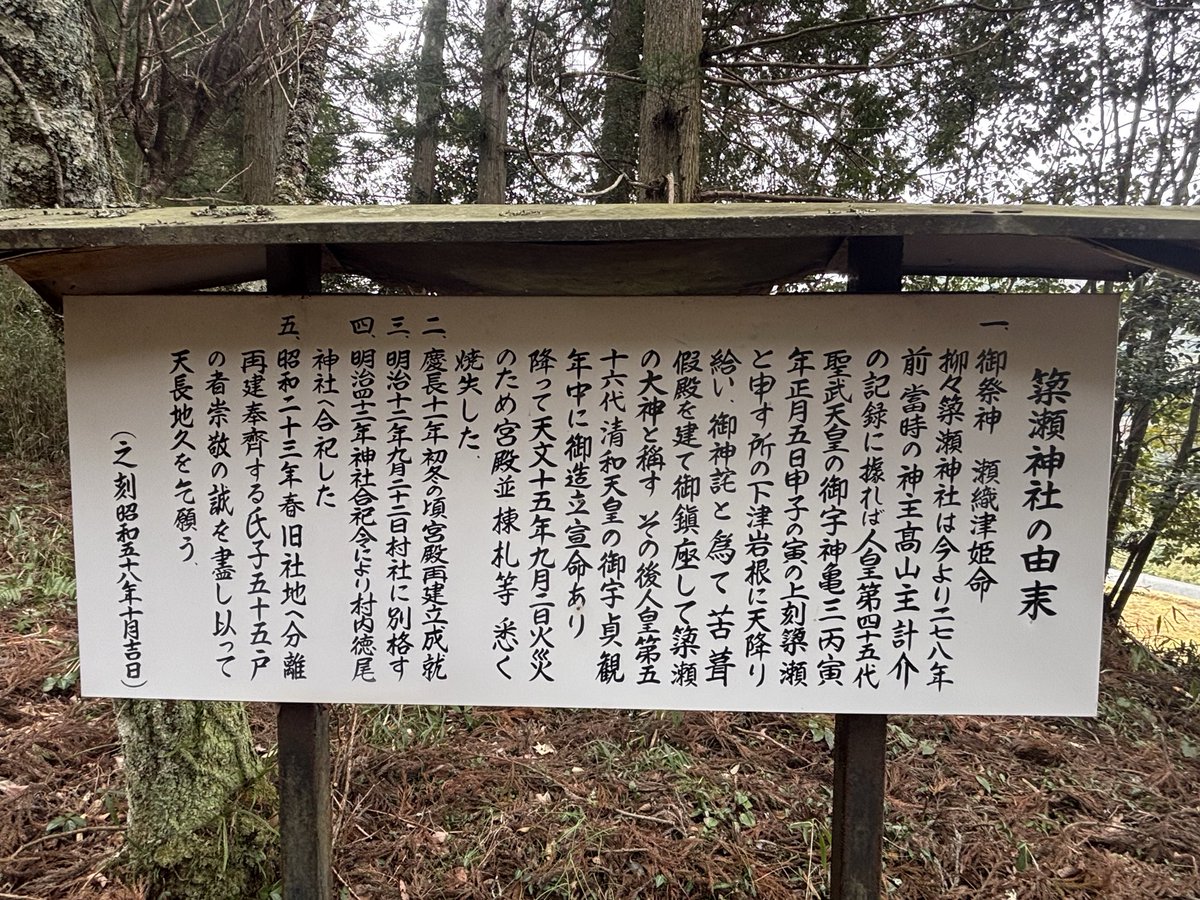 築瀬神社の由来
一、御祭神　瀬織津姫命
柳々築瀬神社は今より二七八年
前 當時の神主髙山主計介
の記録に據れば人皇第四十五代
聖武天皇の御宇神亀三丙寅
年正月五日甲子の寅の上刻築瀬
と申す所の下津岩根に天降り
給い、御神託と為て苫葺
假殿を建て御鎮座して築瀬
の大神と稱す その後人皇第五
十六代清和天皇の御宇貞観
年中に御造立宣命あり
降って天文十五年九月二日火災
のため宮殿並棟札等悉く
焼失した、
二、慶長十一年初冬の頃宮殿再建立成就
三、明治十二年九月二十二日村社に別格す
四、明治四十二年神社合祀令により村内徳尾
神社へ合祀した
五、昭和二十三年春旧社地へ分離
再建奉齊する氏子五十五戸
の者崇敬の誠を盡し以って
天長地久を乞願う、
（之刻昭和五十八年十月吉日）